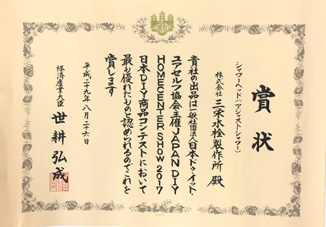 賞状
シャワーヘッド(アシストシャワー)
株式会社 三栄水栓製作所 殿
貴社の出品は一般社団法人日本ドゥ・イット・
ユアセルフ協会主催JAPAN DIY
HOMECENTER SHOW 2017
日本DIY商品コンテストにおいて
最も優れたものと認められるのでこれを
賞します
平成二十九年八月二十六日
経済産業大臣 世耕弘成